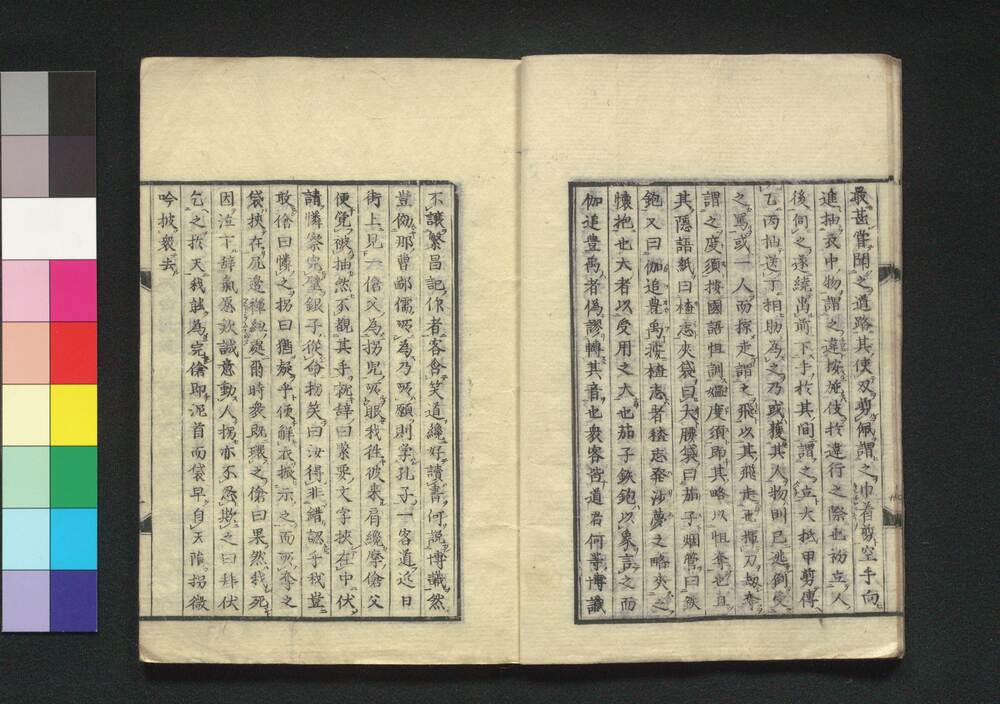 最甚嘗聞之道路其使刄剪佩謂之巾着剪空手向
進抽衣中物謂之違按施伎於違行之際也衲立人
後伺之遠繞出前下手於其間謂之立大抵甲剪傳
乙丙抽送丁相助為之乃或獲其人物則已逃倒受
之罵或一人而掠走謂之飛以其飛走也揮刀劫奪
謂之度須按國語怛訓嫗度須即其略以怛奪也且
其隱語紙曰楂志夾袋曰大腰袋曰茄子烟管曰鉄
鉋又曰伽追豊禹按楂志者楂志發沙夢之略夾之
懐抱也大者以受用之大也茄子鉄鉋以象言之而
伽追豊禹者偽謬轉其音也衆客皆道君何等博識
不讓繁昌記作者客含笑道纔好讀書何説博識然
豈傚那曹鄙儒所為乃所願則学孔子一客道近日
街上見一傖父為拐児所眠我徃彼来肩纔摩傖父
便覚被抽然不覩其手就辞曰緊要文字挾在中伏
請憐察完璧銀子從命拐笑曰汝得非錯認乎我豈
敢傖曰憐之拐曰猶疑乎便解衣振示之而所奪之
袋挾在尻邊褌紐處爾時衆既環之傖曰果然我死
因泣下辞氣懇欵誠意動人拐亦不忍欺之曰拜伏
乞之於天我試為完傖即泥首而袋早自天隕拐微
吟披裘去